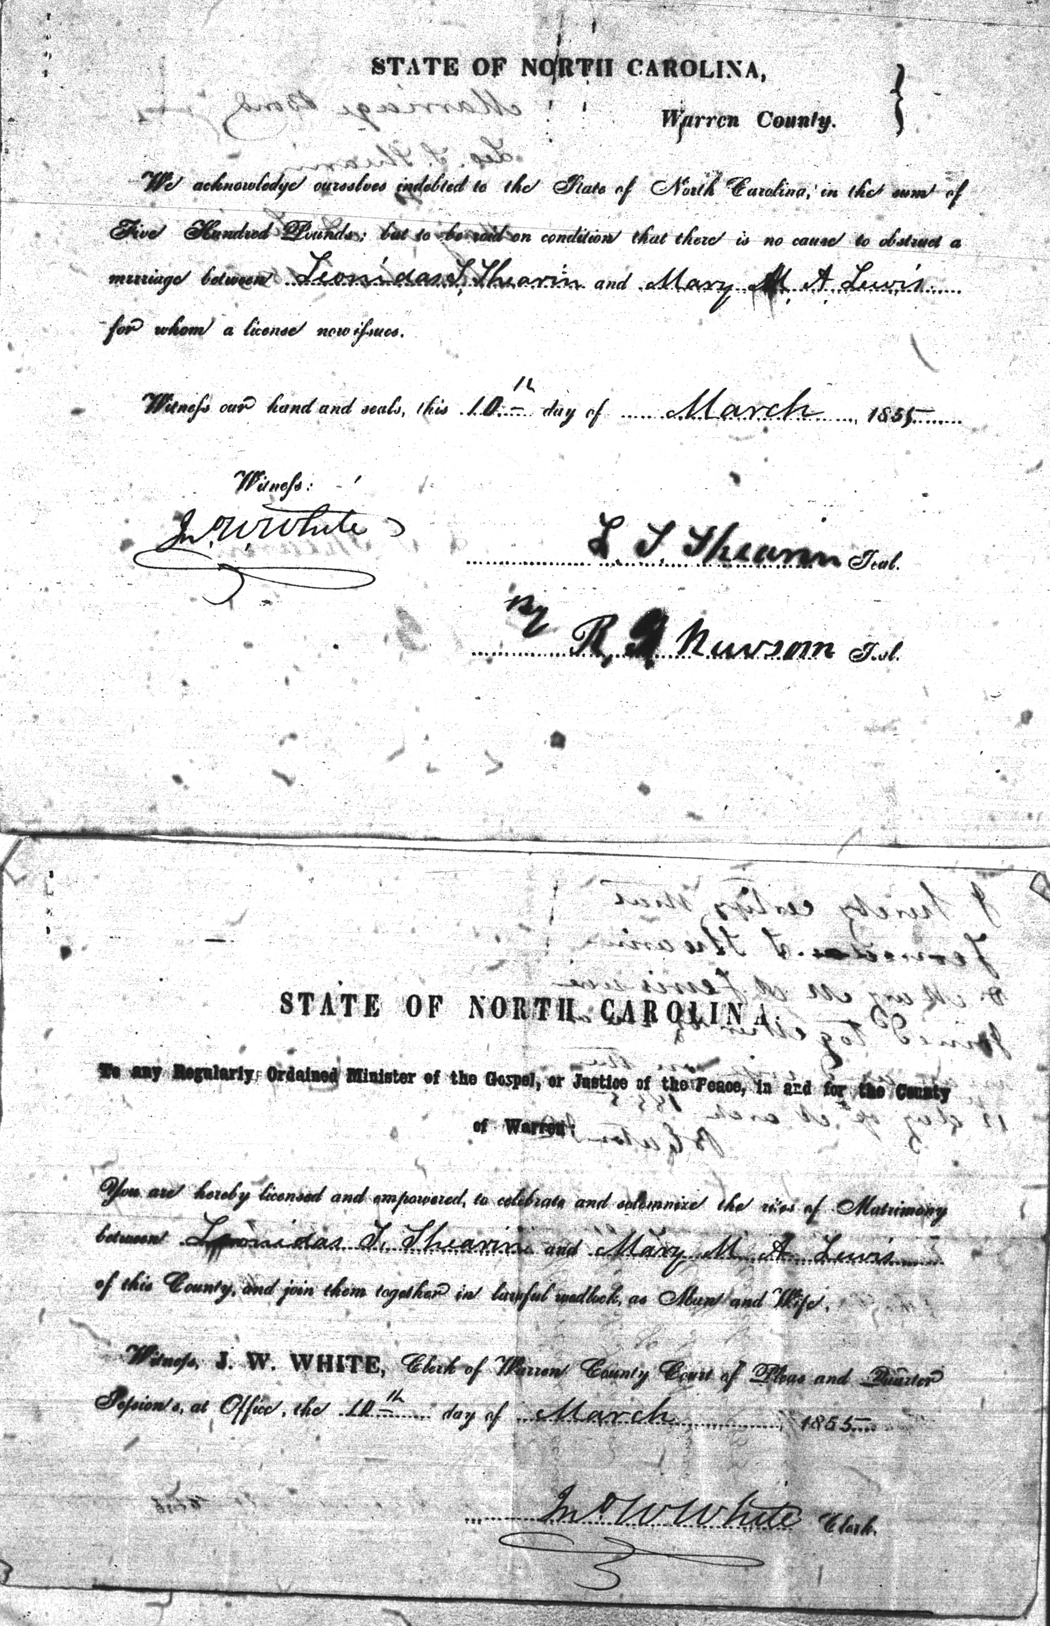 STATE OF NORTH CAROLINA,
Warren County.
We acknowledge ourselves indebted to the State of North Carolina, in the sum of
Five Hundred Pounds; but to be void on condition that there is no cause to obstruct a
marriage between Leonidas T. Shearin and Mary M. A. Lewis
for whom a license now issues.
Witness our hand and seals, this 10th day of March, 1855
Witness:
Jno. W. White
L. T. Shearin Seal.
By
R. G Newsom Seal.
STATE OF NORTH CAROLINA.
To any Regularly Ordained Minister of the Gospel, or Justice of the Peace, in and for the County
of Warren:
You are hereby licensed and empowered, to celebrate and solemnize the rites of Matrimony
between Leonidas T. Shearin and Mary M A Lewis
of this County, and join them together in lawful wedlock, as Man and Wife.
Witness, J. W. WHITE, Clerk of Warren County Court of Pleas and Quarter
Sessions, at Office, the 10th day of March 1855
Jno W White Clerk.